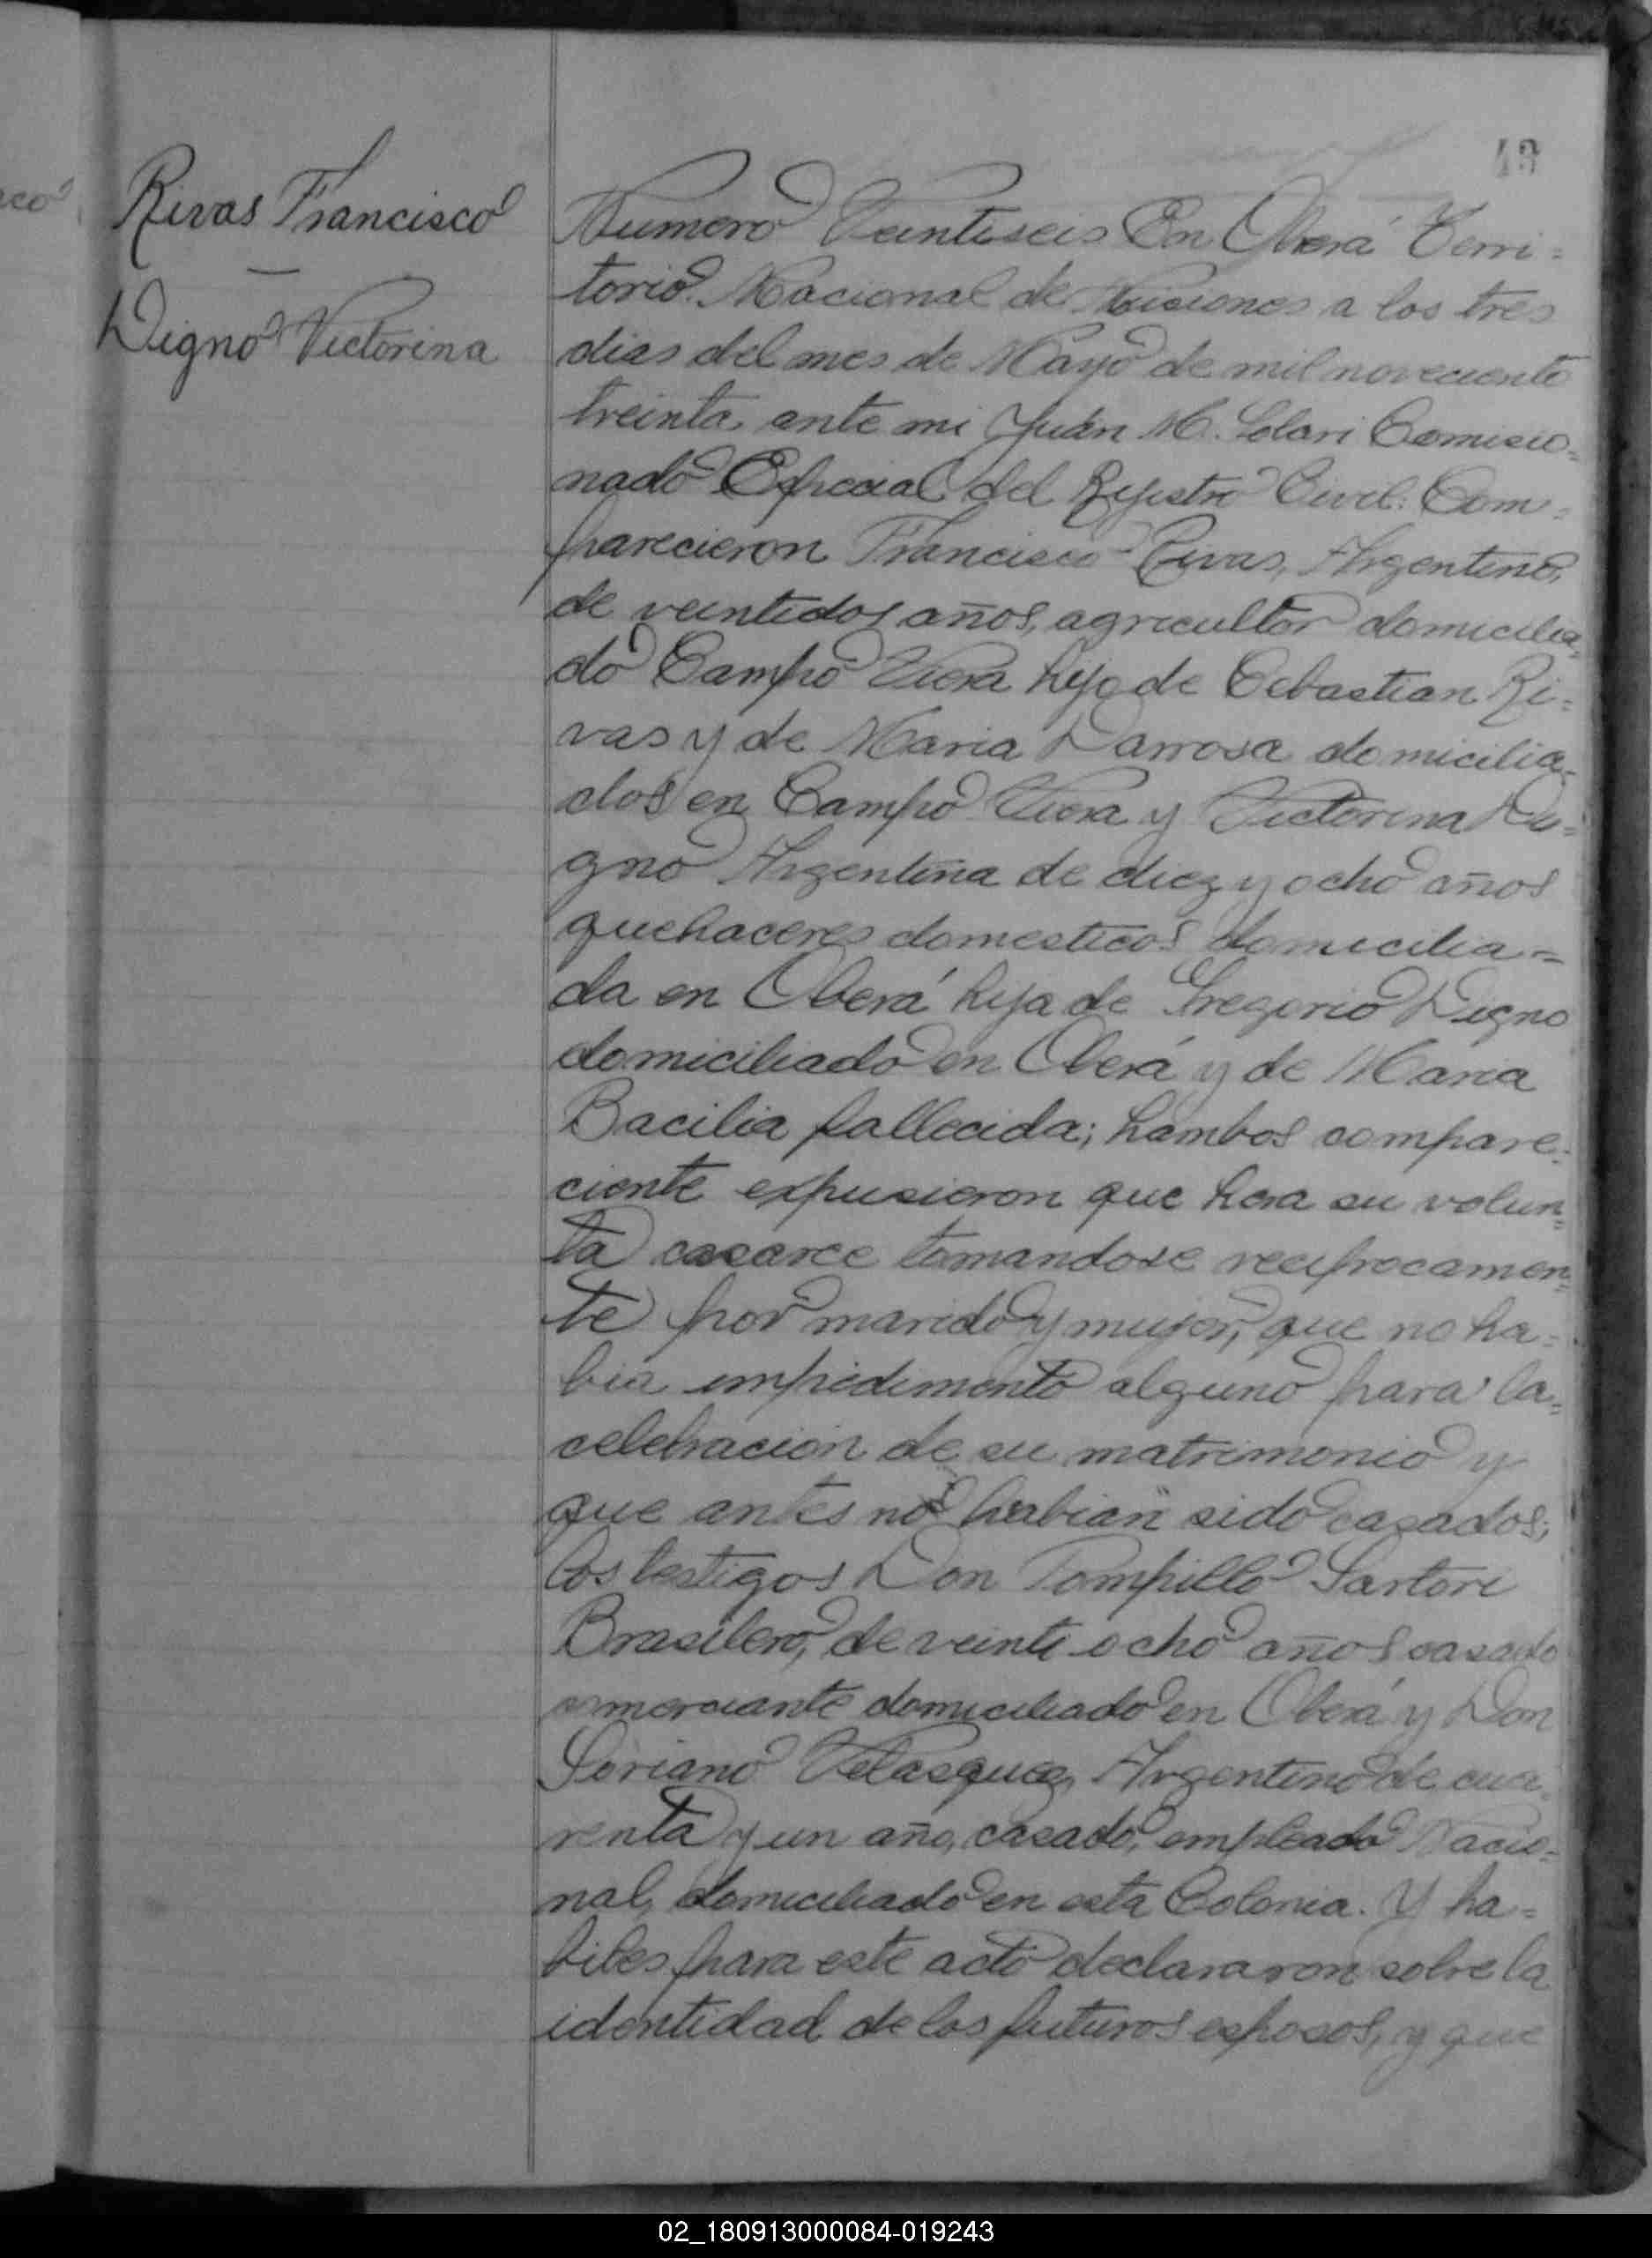 43
Rivas Francisco
—
Digno Victorina
Numero Veintiseis En Oberá Terri=
torio Nacional de Misiones a los tres
dias del mes de Mayo de mil noveciento
treinta, ante mi Juán M. Solari Comisio=
nado Especial del Rejistro Civil: Com=
parecieron Francisco Rivas, Argentino,
de veintidos años, agricultor domicilia=
do Campo Viera hijo de Cebastian Ri=
vas y de Maria Darrosa domicilia=
dos en Campo Viera y Victorina Di=
gno Argentina de diez y ocho años
quehaceres domesticos domicilia=
da en Oberá hija de Gregorio Digno
domiciliado en Oberá y de Maria
Bacilia fallecida; hambos compare=
ciente expusieron que hera su volun=
ta casarce tomandose reciprocamen=
te por marido y mujer, que no ha=
bia impidimento alguno para la=
celebracion de su matrimonio y
que antes no habian sido casados;
los testigos Don Pompillo Sartori
Brasilero, de veinti ocho años casado
comerciante domiciliado en Oberá y Don
Soriano Velasquez, Argentino de cua=
renta y un año, casado, empleado Nacio=
nal, domiciliado en esta Colonia. Y ha=
biles para este acto declararon sobre la
identidad de los futuros esposos, y que
02_180913000084-019243